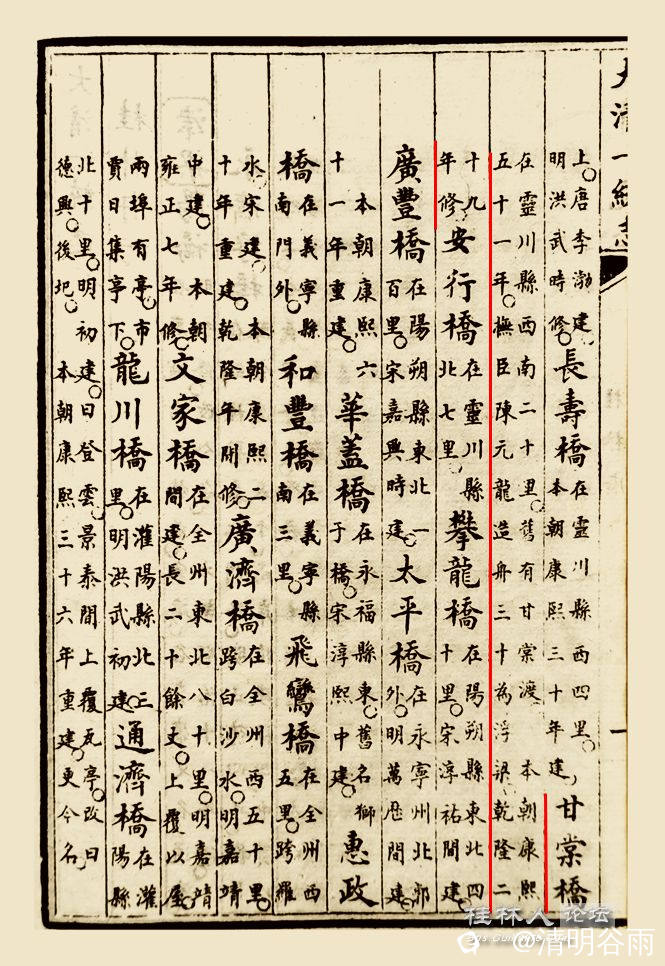 大清一統志
上唐李渤建明洪武時修長壽橋在靈川縣西四里本朝康熙三十年建甘棠橋
在靈川縣西南二十里舊有甘棠渡本朝康熙五十一年撫臣陳元龍造舟三十為浮梁乾隆二
十九年修安行橋在靈川縣北七里攀龍橋在陽朔縣東北四十里宋淳祐間建
廣豐橋在陽朔縣東北一百里宋嘉興時建太平橋在永寧州北郭外明萬歷間建
本朝康熙六十一年重建華蓋橋在永福縣東舊名獅于橋宋淳熙中建惠政
橋在義寧縣南門外和豐橋在義寧縣南三里飛鸞橋在全州西五里跨羅
水宋建本朝康熙二十年重建乾隆年間修廣濟橋在全州西五十里跨白沙水明嘉靖
中建本朝雍正七年修文家橋在全州東北八十里明嘉靖間建長二十餘丈上覆以屋
兩埠有亭市賈日集亭下龍川橋在灌陽縣北三里明洪武初建通濟橋在灌陽縣
北十里明初建曰登雲景泰間上覆瓦亭改曰德興後圮本朝康熙三十六年重建更今名
桂林人论坛
@清明谷雨